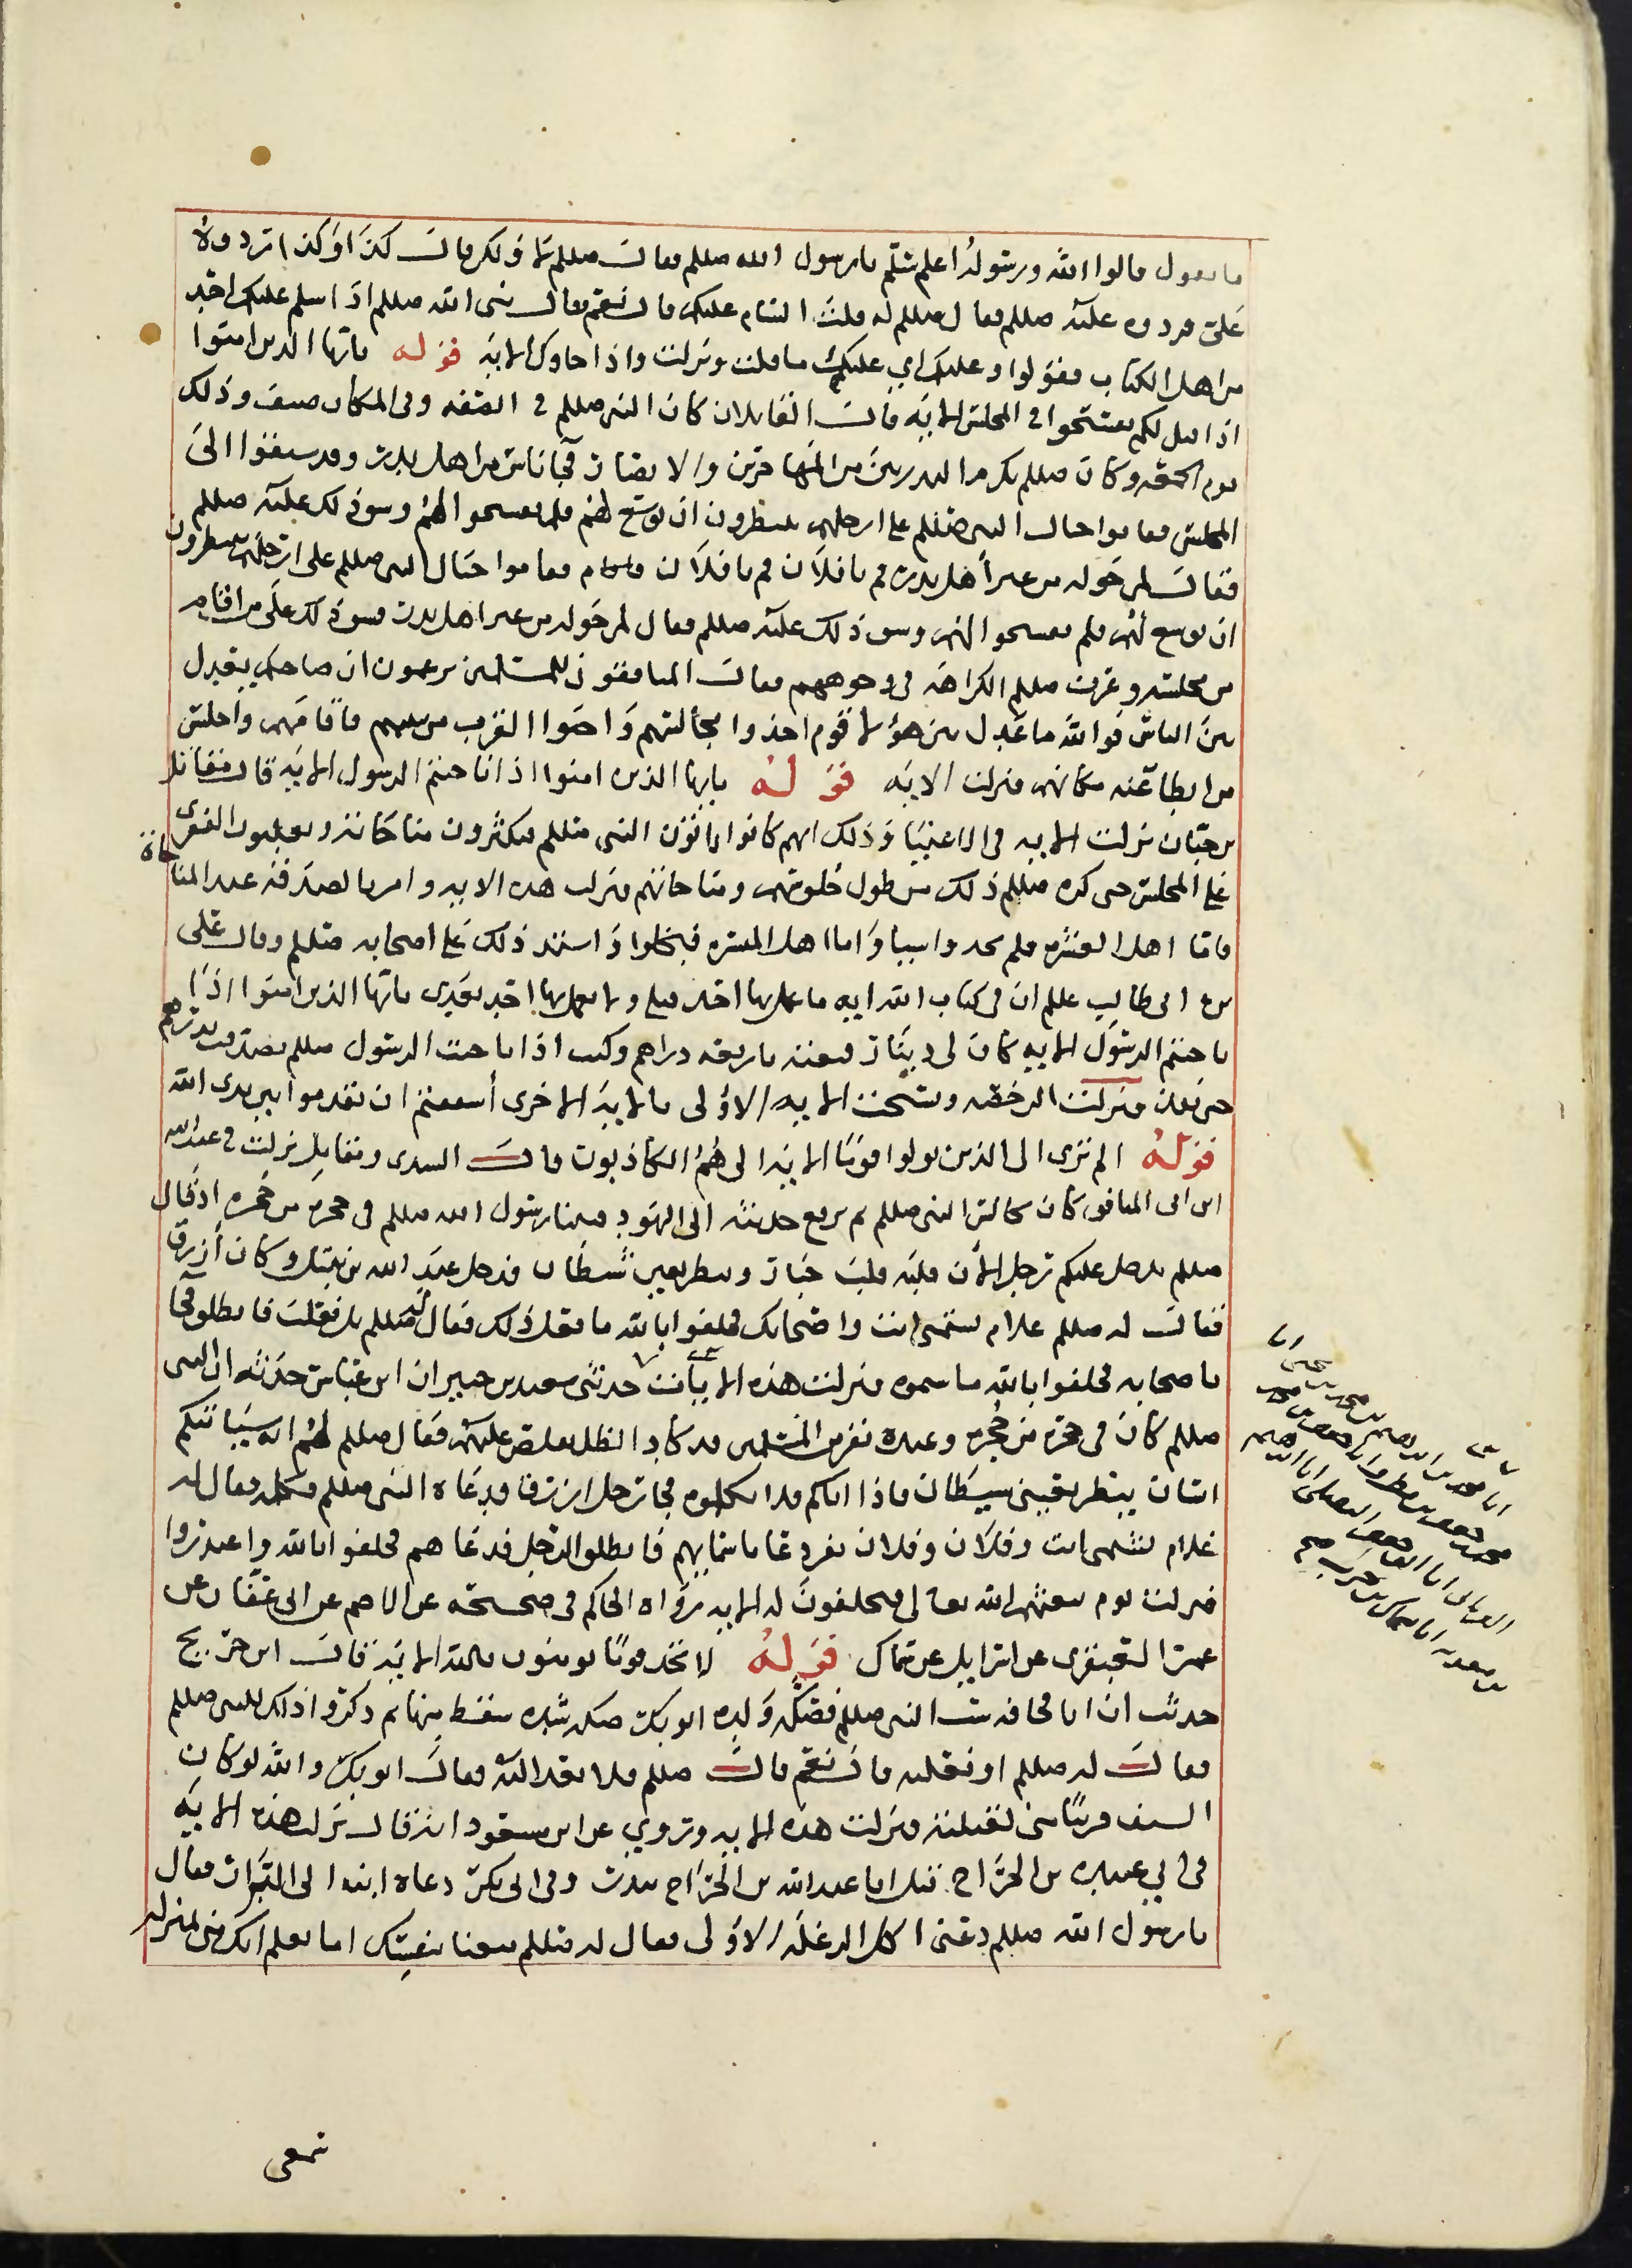 ما يقول قالوا الله ورسوله اعلم سلم يا رسول الله صللم فقال صللم لا ولكن قال كذا وكذا تردوه
علي فردوه عليه صللم فقال صللم له قلت السام عليكم قال نعم فقال نبي الله صللم اذا سلم عليكم احد
من اهل الكتاب فقولوا وعليك اي عليك ما قلت ونزلت واذا جاوك الايه قوله يايها الذين امنوا
اذا قيل لكم تفسحوا في المجلس الايه قال المقاتلان كان النبي صللم في الصفه وفي المكان ضيق وذلك
يوم الجمعه وكان صللم يكرم البدريين من المهاجرين والانصار فجا ناس من اهل بدر وقد سبقوا الى
المجلس فقاموا حيال النبي صللم على ارجلهم ينتظرون ان يوسع لهم فلم يفسحوا لهم وسق ذلك عليه صللم
فقال لمن حوله من غير اهل بدر قم يا فلان قم يا فلان فقاموا حيال النبي صللم على ارجلهم ينتظرون
ان يوسع لهم فلم يفسحوا لهم وسق ذلك عليه صللم فقال لمن حوله من غير اهل بدر فسق ذلك على من اقام
من مجلسه وعرف صللم الكراهه في وجوههم فقال المنافقون للمسلمين تزعمون ان صاحبكم يعدل
بين الناس فوالله ما عدل بين هؤلا قوم اخذوا مجالسهم واحبوا القرب من نبيهم فاقامهم واجلس
من ابطا عنه مكانهم فنزلت الايه قوله يايها الذين امنوا اذا ناجيتم الرسول الايه قال مقاتل
بن حيان نزلت الايه في الاغنيا وذلك انهم كانوا ياتون النبي صللم فيكثرون مناجاته ويغلبون الفقرى
على المجلس حتى كره صللم ذلك من طول جلوسهم ومناجاتهم فنزلت هذه الايه وامر بالصدقه عند المناجاة
فاما اهل العسره فلم يجدوا شيا واما اهل الميسره فبخلوا واشتد ذلك على اصحابه صللم وقال على
بن ابي طالب عللم ان في كتاب الله ايه ما عمل بها احد قبلي ولا يعمل بها احد بعدي يايها الذين امنوا اذا
ناجيتم الرسول الايه كان لي دينار فبعته باربعه دراهم وكنت اذا ناجيت الرسول صللم تصدقت بدرهم
حتى نفد فنزلت الرخصه ونسخت الايه الاولى بالايه الاخرى أشفقتم ان تقدموا بين يدى الله
قوله الم ترى الى الذين تولوا قوما الايه الى هم الكاذبون قال السدى ومقاتل نزلت في عبدالله
ابن ابي المنافق كان يجالس النبي صللم ثم يرفع حديثه الى اليهود فبينا رسول الله صللم في حجره من حجره اذ قال
صللم يدخل عليكم رجل الان قلبه قلب جبار وينظر بعين شيطان فدخل عبد الله بن نبتل وكان أزرق
فقال له صللم علام تشتمني انت واصحابك فحلفوا بالله ما فعل ذلك فقال له صللم بل فعلت فانطلق فجا
باصحابه فحلفوا بالله ما سبوه فنزلت هذه الايات حدثني سعيد بن جبير ان ابن عباس حدثه ان النبي
صللم كان في حجره من حجره وعنده نفر من المسلمين قد كاد الظل يقلص عليهم فقال صللم لهم انه سياتيكم
انسان ينظر بعيني شيطان فاذا اتاكم فلا تكلموه فجا رجل ازرق فدعاه النبي صللم فكلمه فقال له
علام تشتمني انت وفلان وفلان نفر دعا باسمايهم فانطلق الرجل فدعاهم فحلفوا بالله واعتذروا
فنزلت يوم يبعثهم الله تعالى فيحلفون له الايه رواه الحاكم في صحيحه عن الاصم عن ابي عفان عن
عمرو العنقزى عن اسرايل عن سماك قوله لا تجد قوما يومنون بالله الايه قال ابن جريج
حدثت ان ابا قحافه سب النبي صللم فصكه ولده ابو بكر صكه شديده سقط منها ثم ذكروا ذلك للنبي صللم
فقال له صللم اوفعلته قال نعم قال صللم فلا تعد اليه فقال ابو بكر والله لو كان
السيف قريبا مني لقتلته فنزلت هذه الايه وروي عن ابن مسعود انه قال نزلت هذه الايه
في ابي عبيده بن الجراح قتل اباه عبد الله بن الجراح ببدر وفي ابي بكر دعاه ابنه الى البراز فقال
يا رسول الله صللم دعني اكن في الرعله الاولى فقال له صللم متعنا بنفسك اما تعلم انك مني بمنزله
سمعي